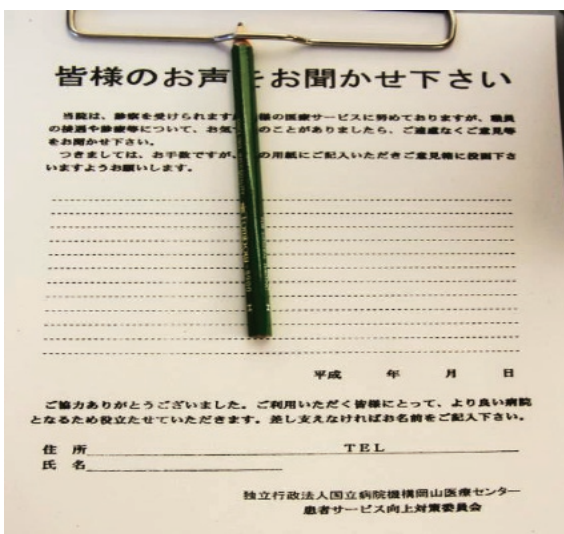 皆様のお声をお聞かせ下さい
当院は、診察を受けられます 様の医療サービスに努めておりますが、職員
の接遇や診療等について、お気 のことがありましたら、ご遠慮なくご意見等
をお聞かせ下さい。
つきましては、お手数ですが、 の用紙にご記入いただきご意見箱に投函下さ
いますようお願いします。
平成 年 月 日
ご協力ありがとうございました。ご利用いただく皆様にとって、より良い病院
となるため役立たせていただきます。差し支えなければお名前をご記入下さい。
住 所 TEL
氏 名
独立行政法人国立病院機構岡山医療センター
患者サービス向上対策委員会